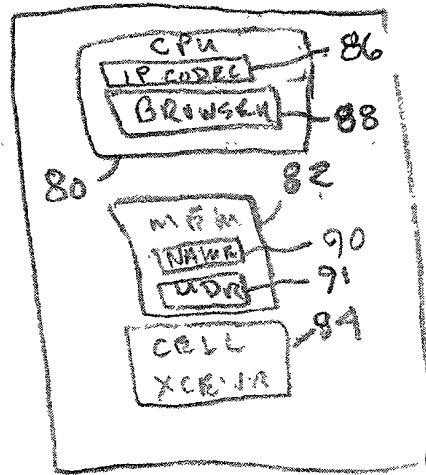 CPU
86
IP CODEC
BROWSER
88
80
82
MEM
NAME
90
ADDR
91
84
CELL
XCEIVR